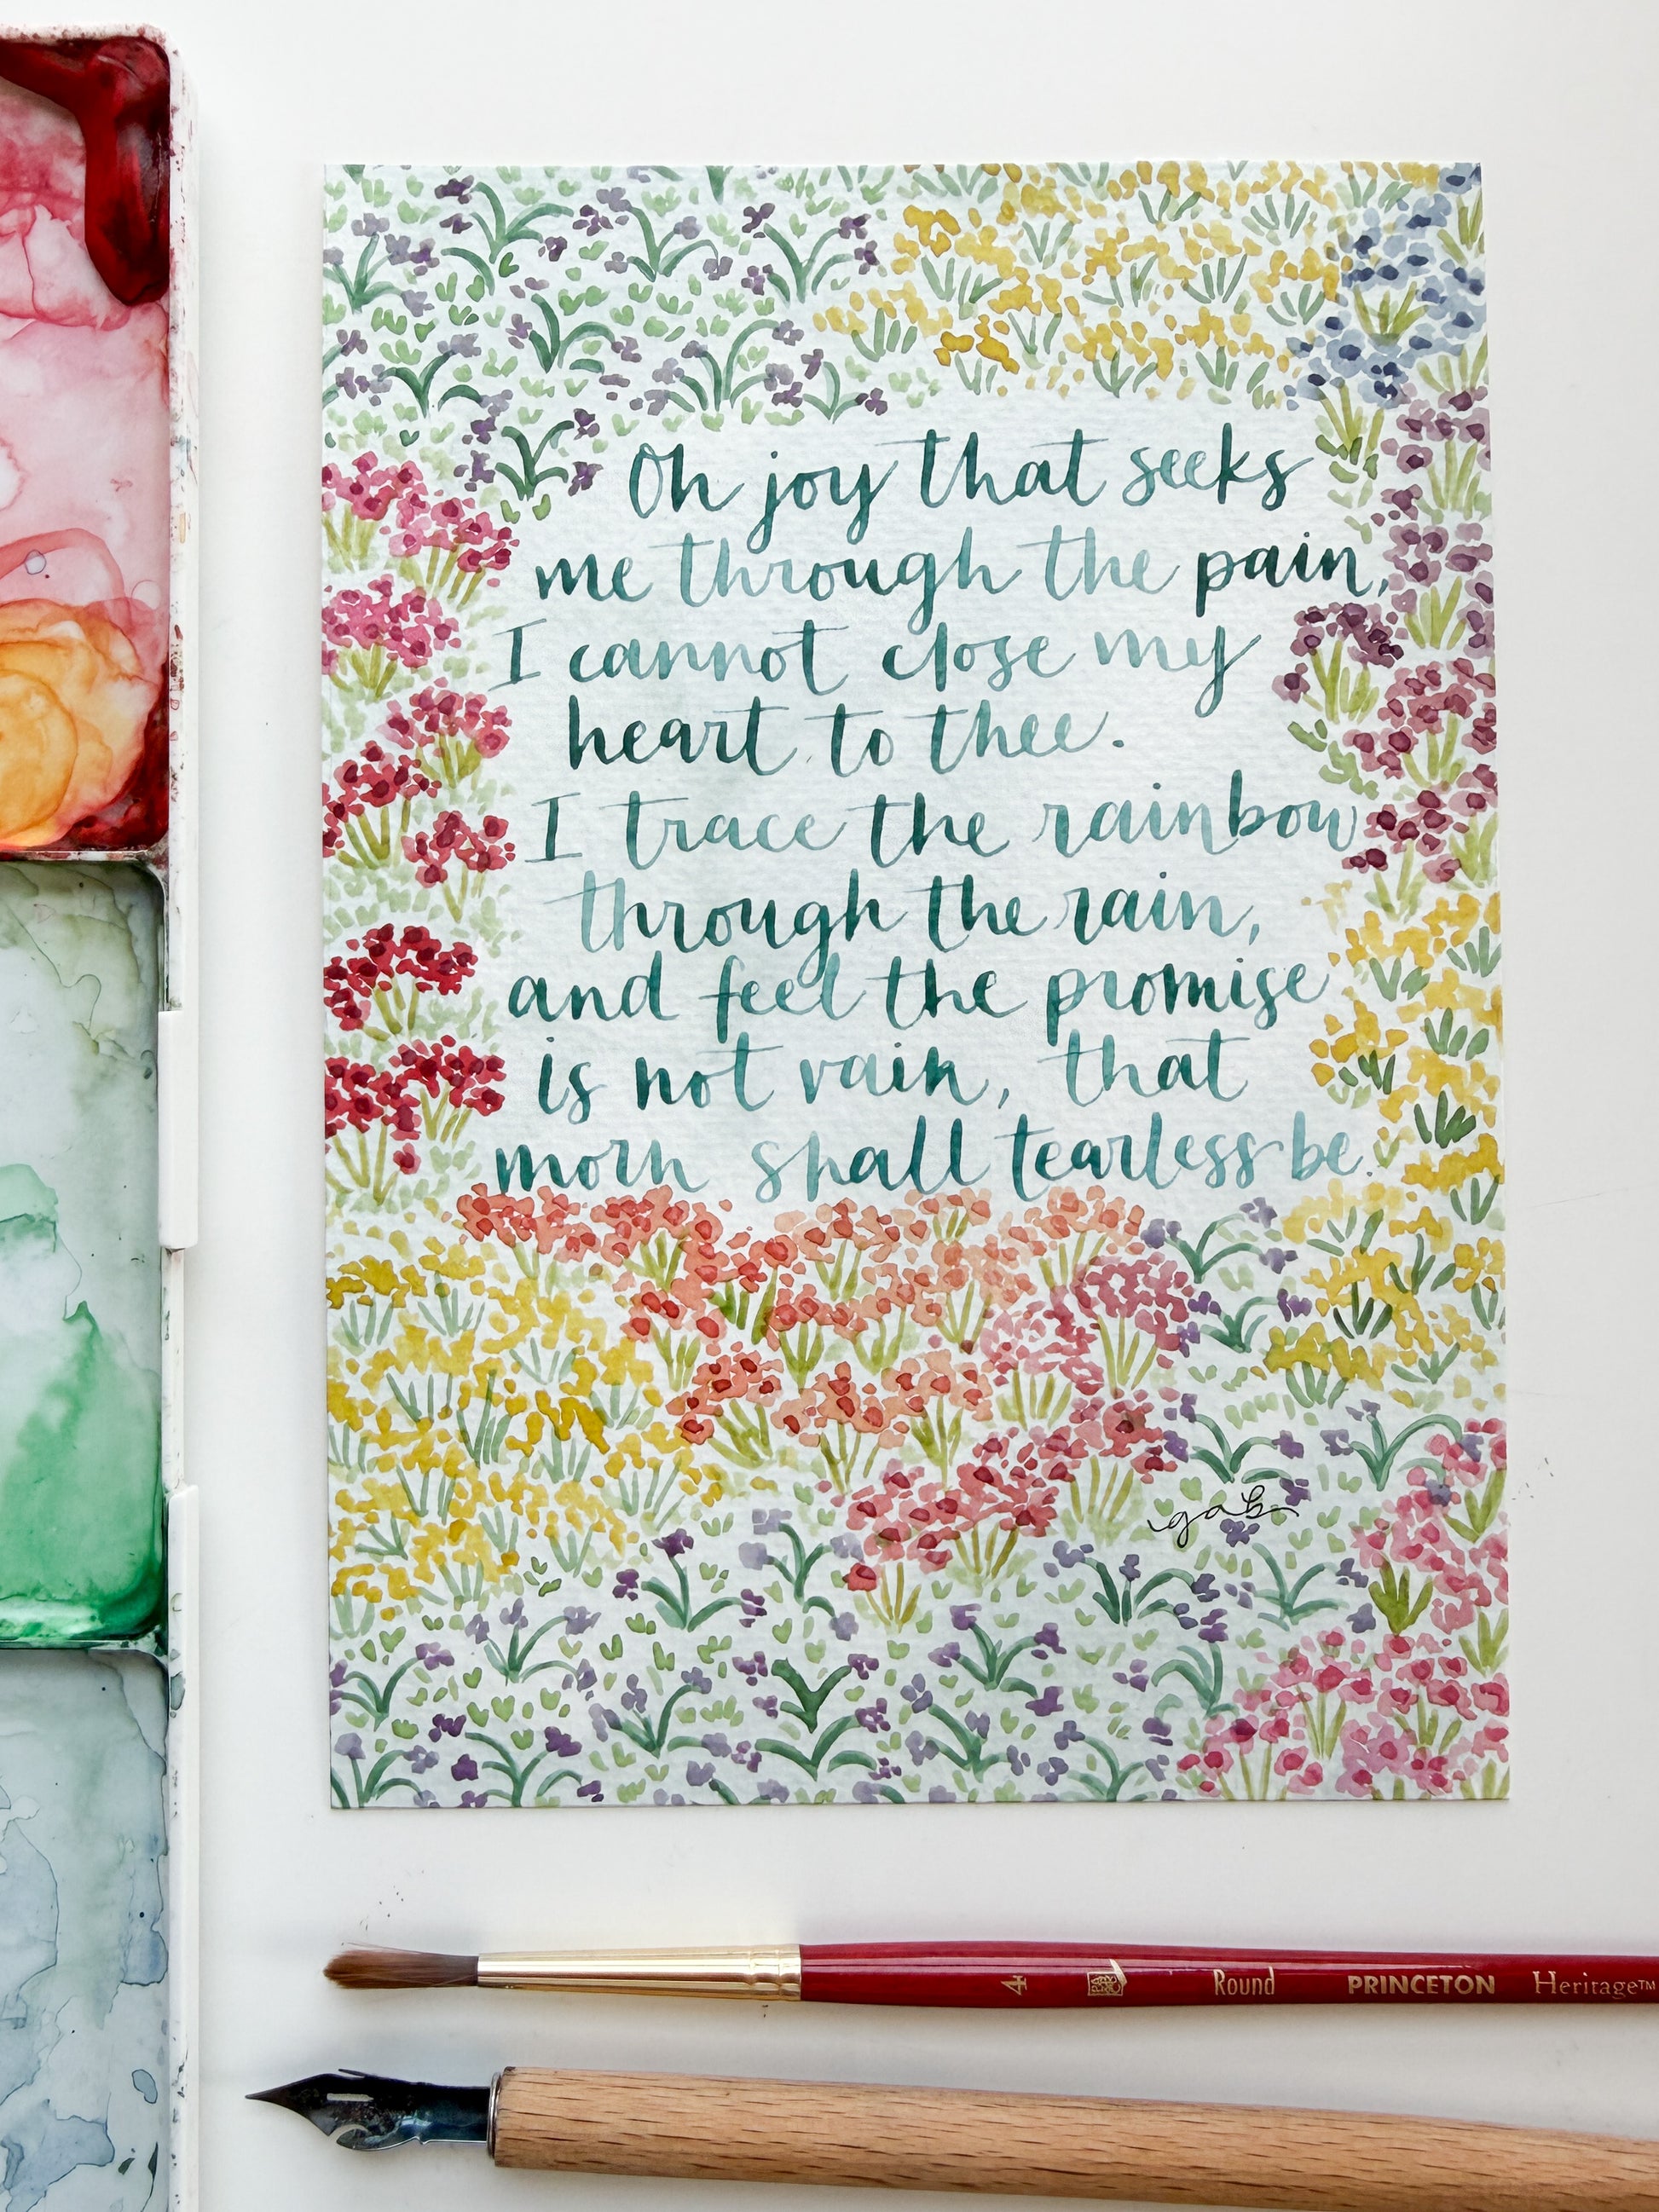 Oh joy that seeks
me through the pain,
I cannot close my
heart to thee.
I trace the rainbow
through the rain,
and feel the promise
is not vain, that
morn shall tearless be.
gab
4 Round PRINCETON Heritage™